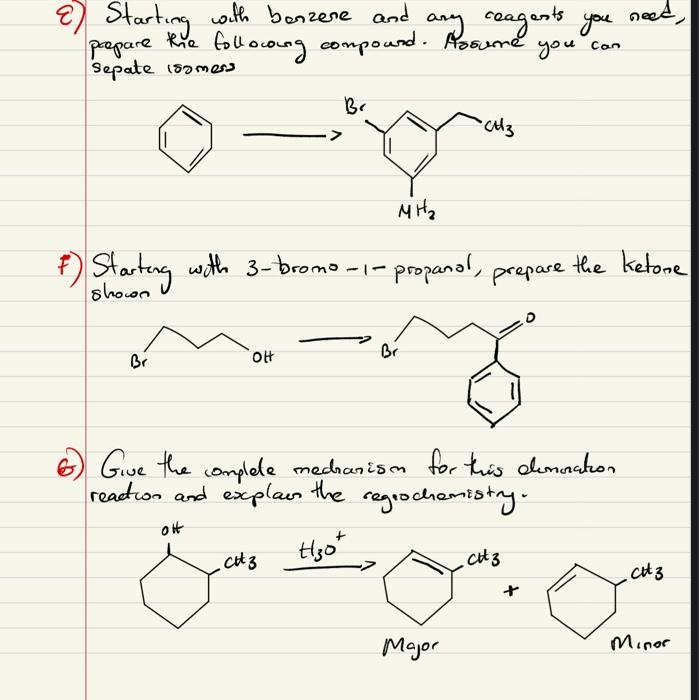 E) Starting with benzene and any reagents you need,
prepare the following compound. Assume you can
Sepate isomers
Br
CH3
NH2
F) Starting with 3-bromo-1-propanol, prepare the ketone
shown
O
Br
OH
Br
G) Give the complete mechanism for this elimination
reaction and explain the regiochemistry.
OH
CH3
H3O+
CH3
+
CH3
Major
Minor